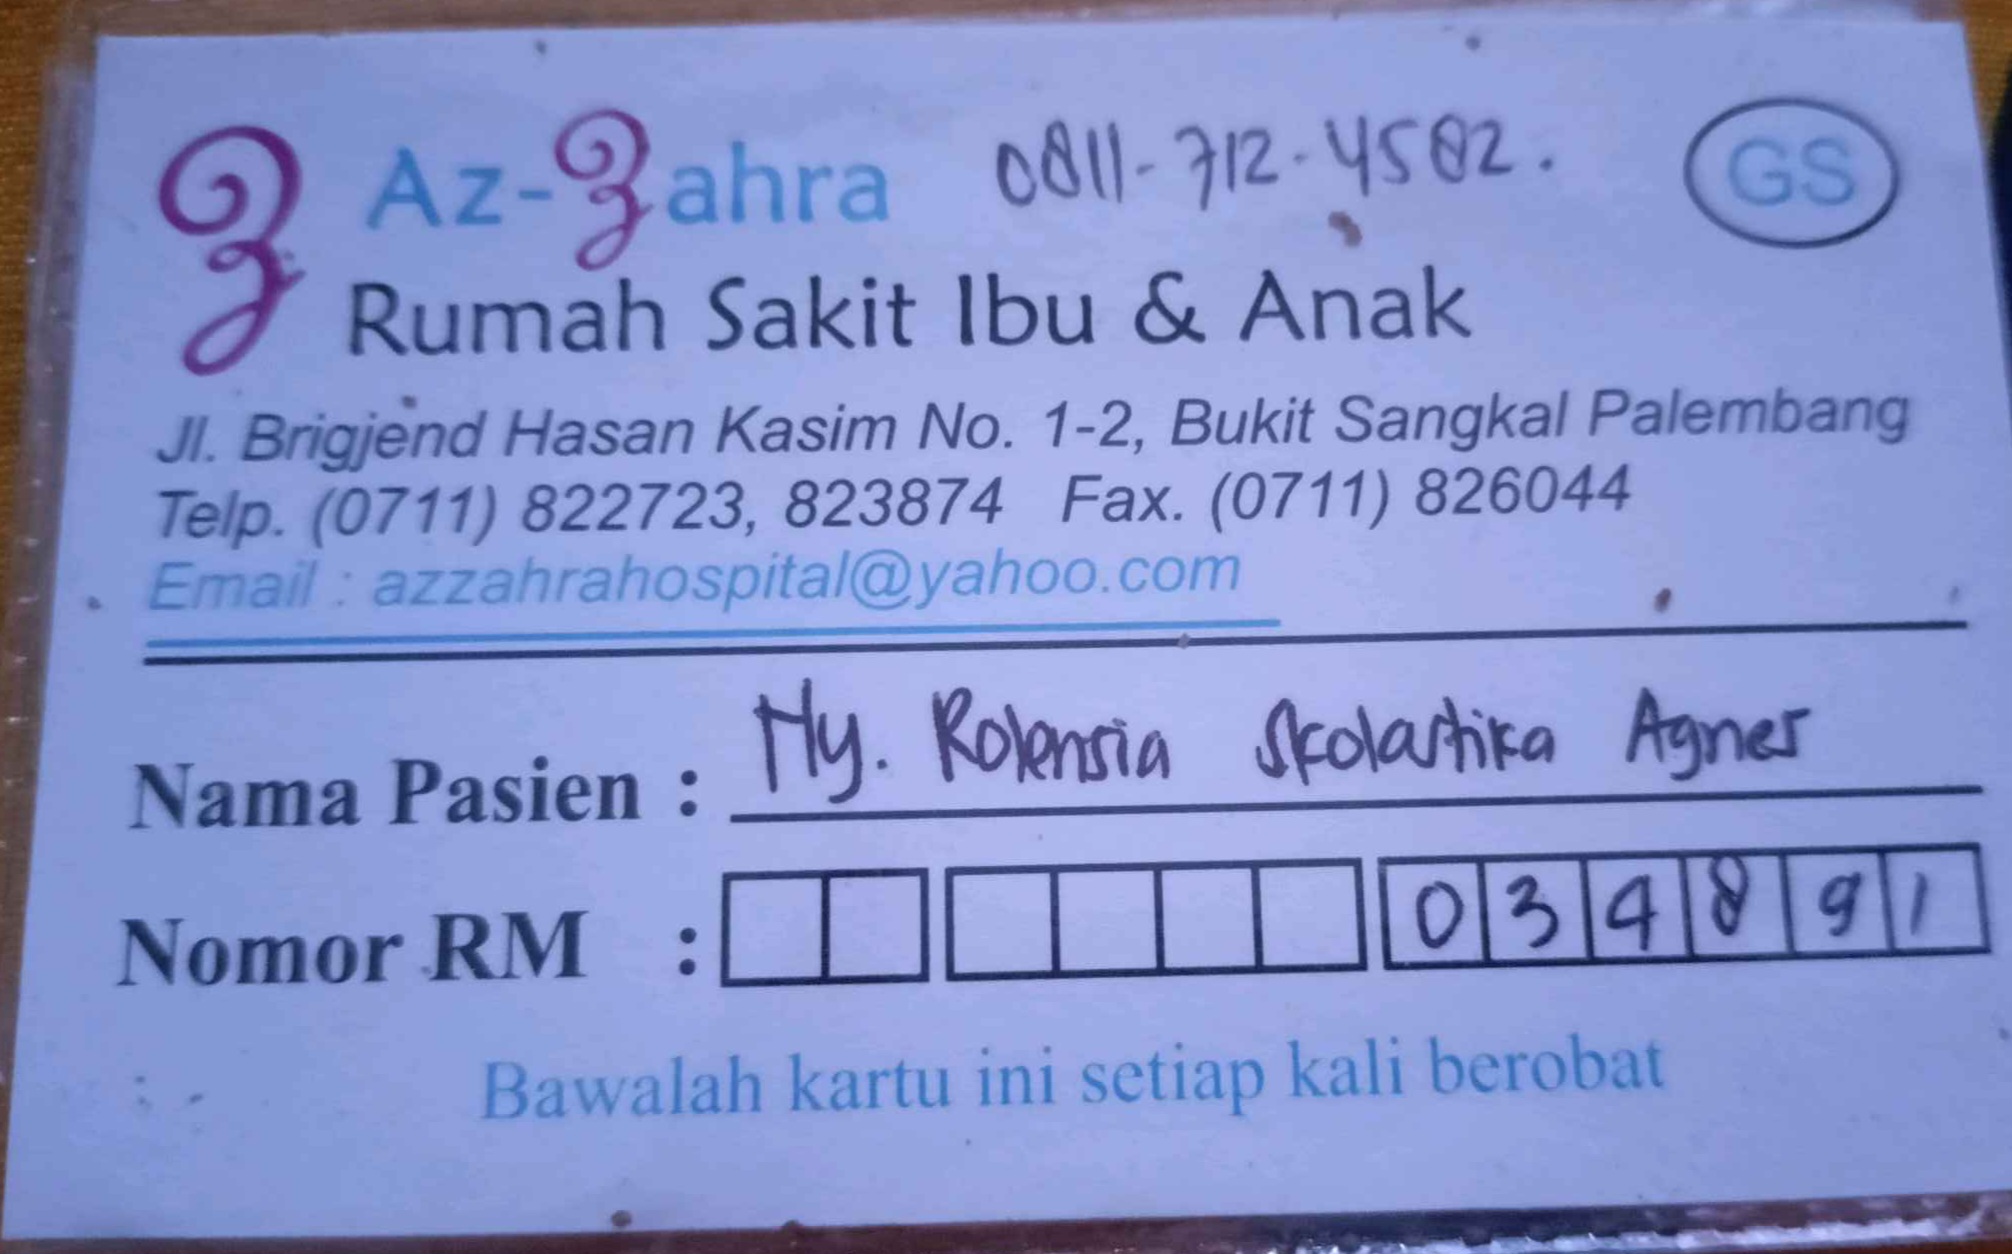 Az-Zahra 0811-712-4582.
GS
Rumah Sakit Ibu & Anak
Jl. Brigjend Hasan Kasim No. 1-2, Bukit Sangkal Palembang
Telp. (0711) 822723, 823874 Fax. (0711) 826044
Email : azzahrahospital@yahoo.com
Nama Pasien : Ny. Rolensia Skolastika Agnes
Nomor RM : 034891
Bawalah kartu ini setiap kali berobat